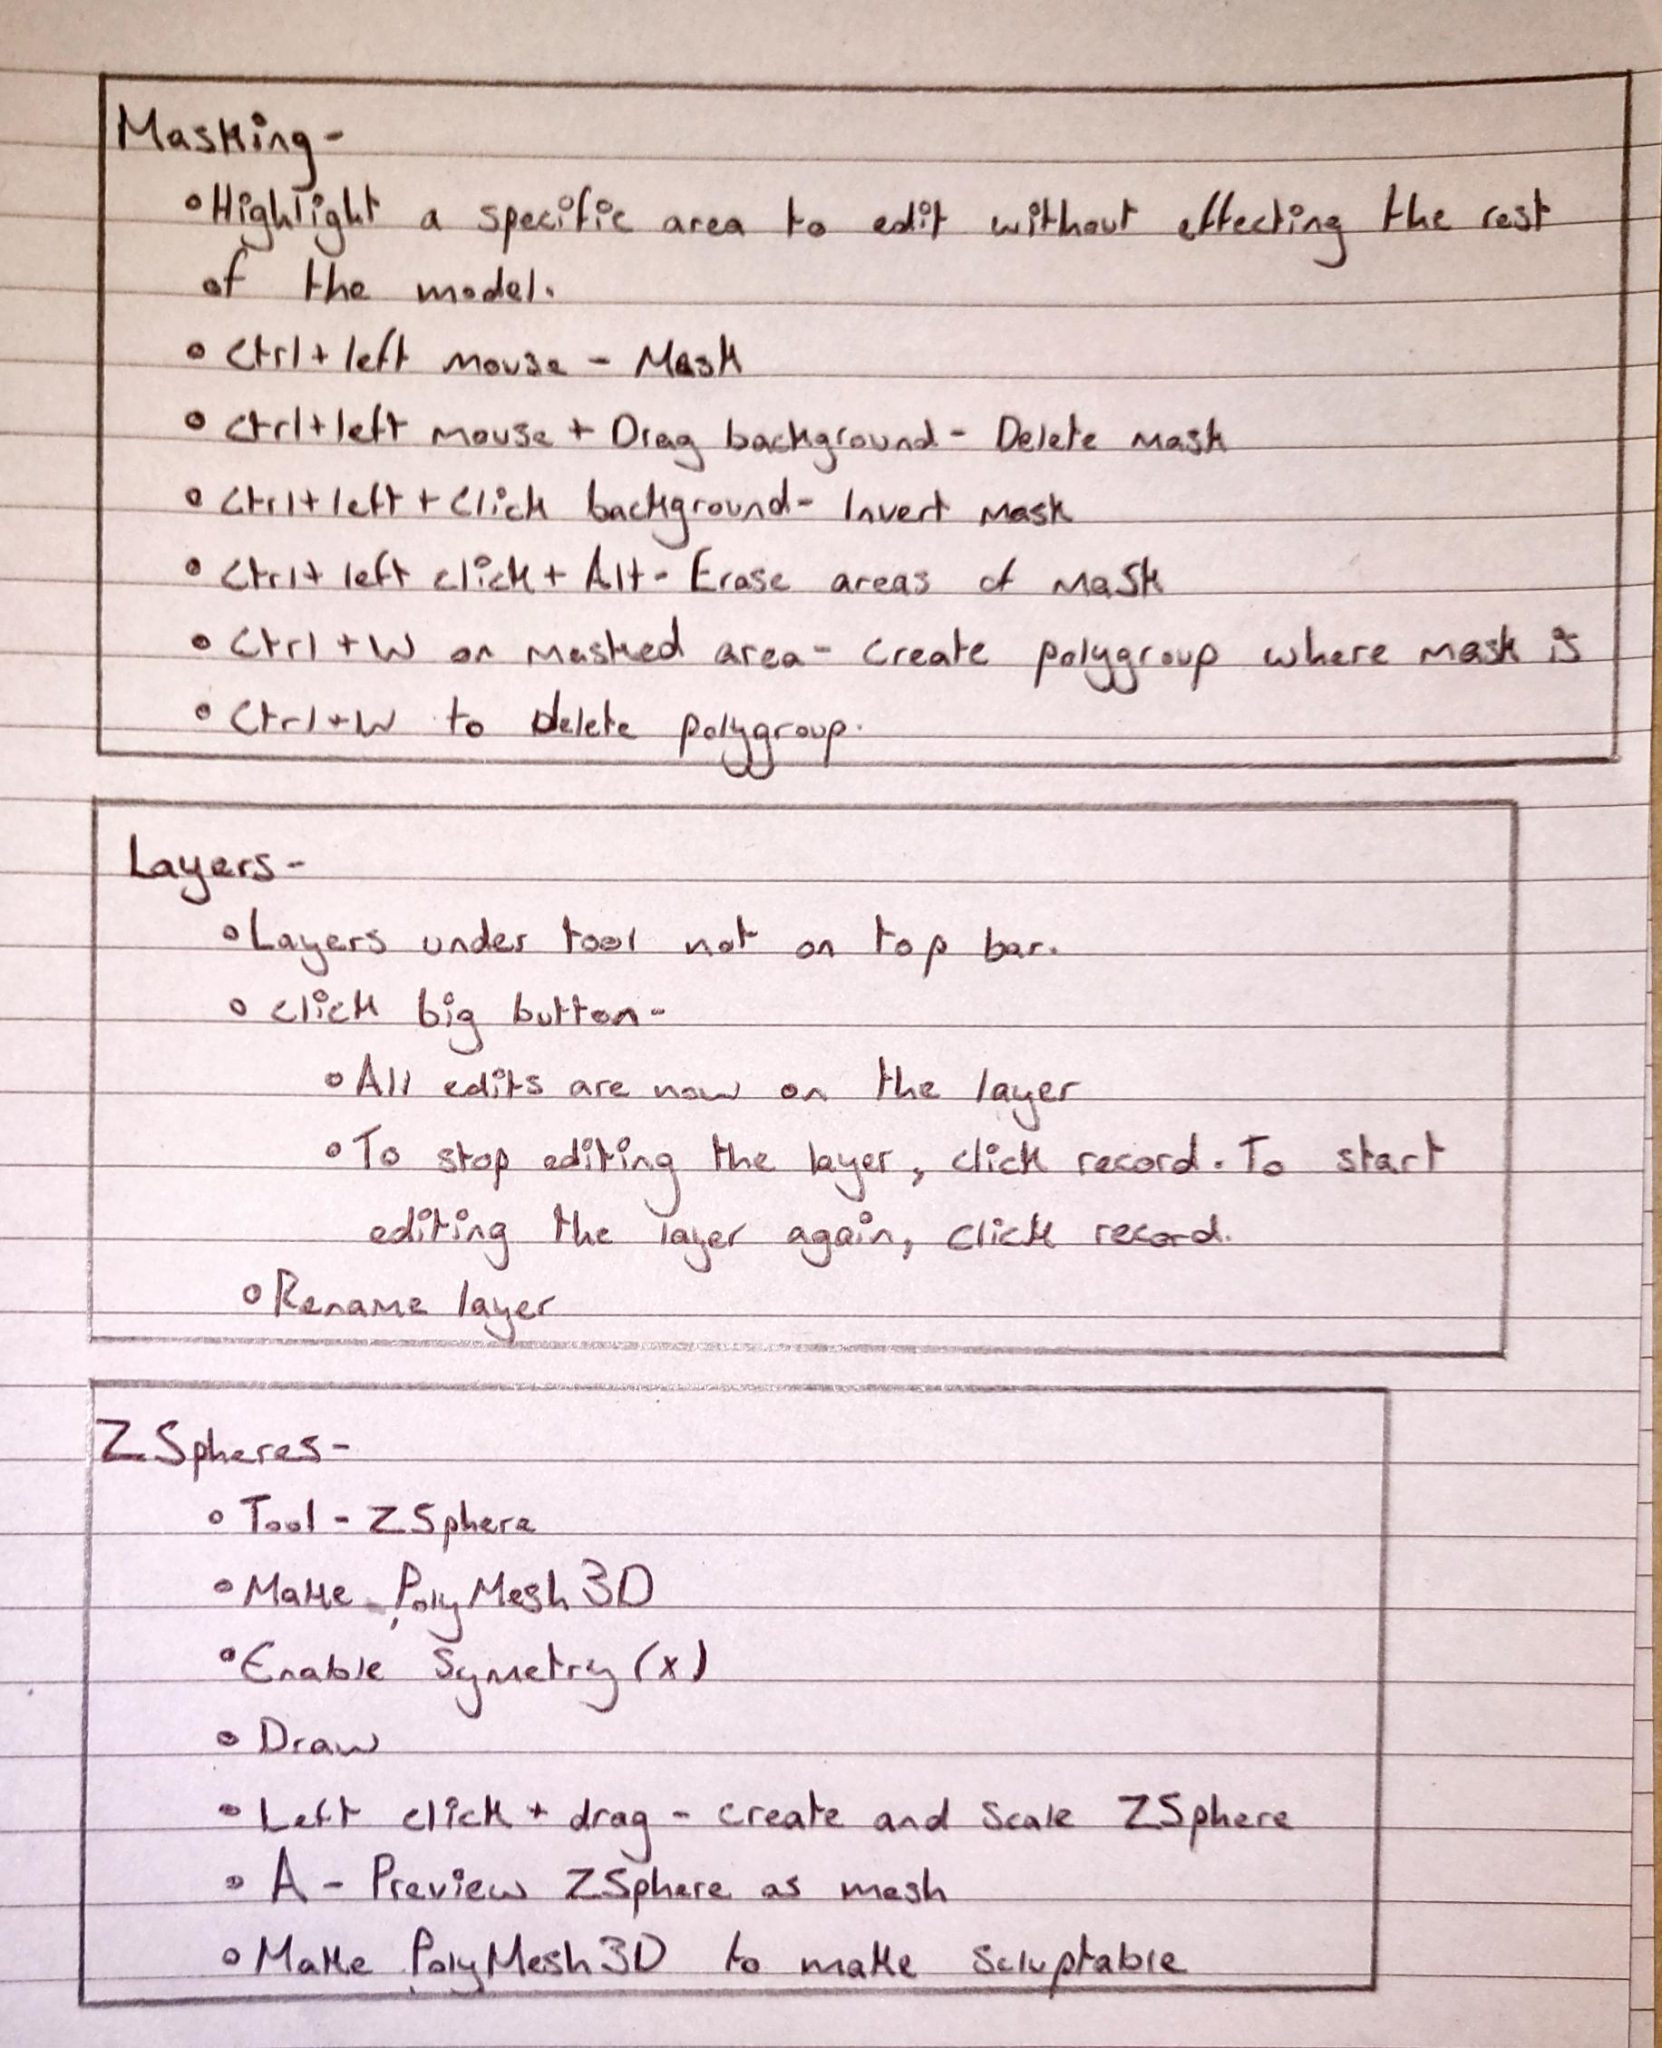 Masking -
• Highlight a specific area to edit without effecting the rest
of the model.
• Ctrl + left mouse - Mask
• Ctrl + left mouse + Drag background - Delete mask
• Ctrl + left + Click background - Invert mask
• Ctrl + left click + Alt - Erase areas of mask
• Ctrl + W on masked area - create polygroup where mask is
• Ctrl + W to Delete polygroup.
Layers -
• Layers under tool not on top bar.
• click big button -
• All edits are now on the layer
• To stop editing the layer, click record. To start
editing the layer again, click record.
• Rename layer
ZSpheres -
• Tool - ZSphere
• Make PolyMesh3D
• Enable Symetry (x)
• Draw
• Left click + drag - create and scale ZSphere
• A - Preview ZSphere as mesh
• Make PolyMesh3D to make scluptable